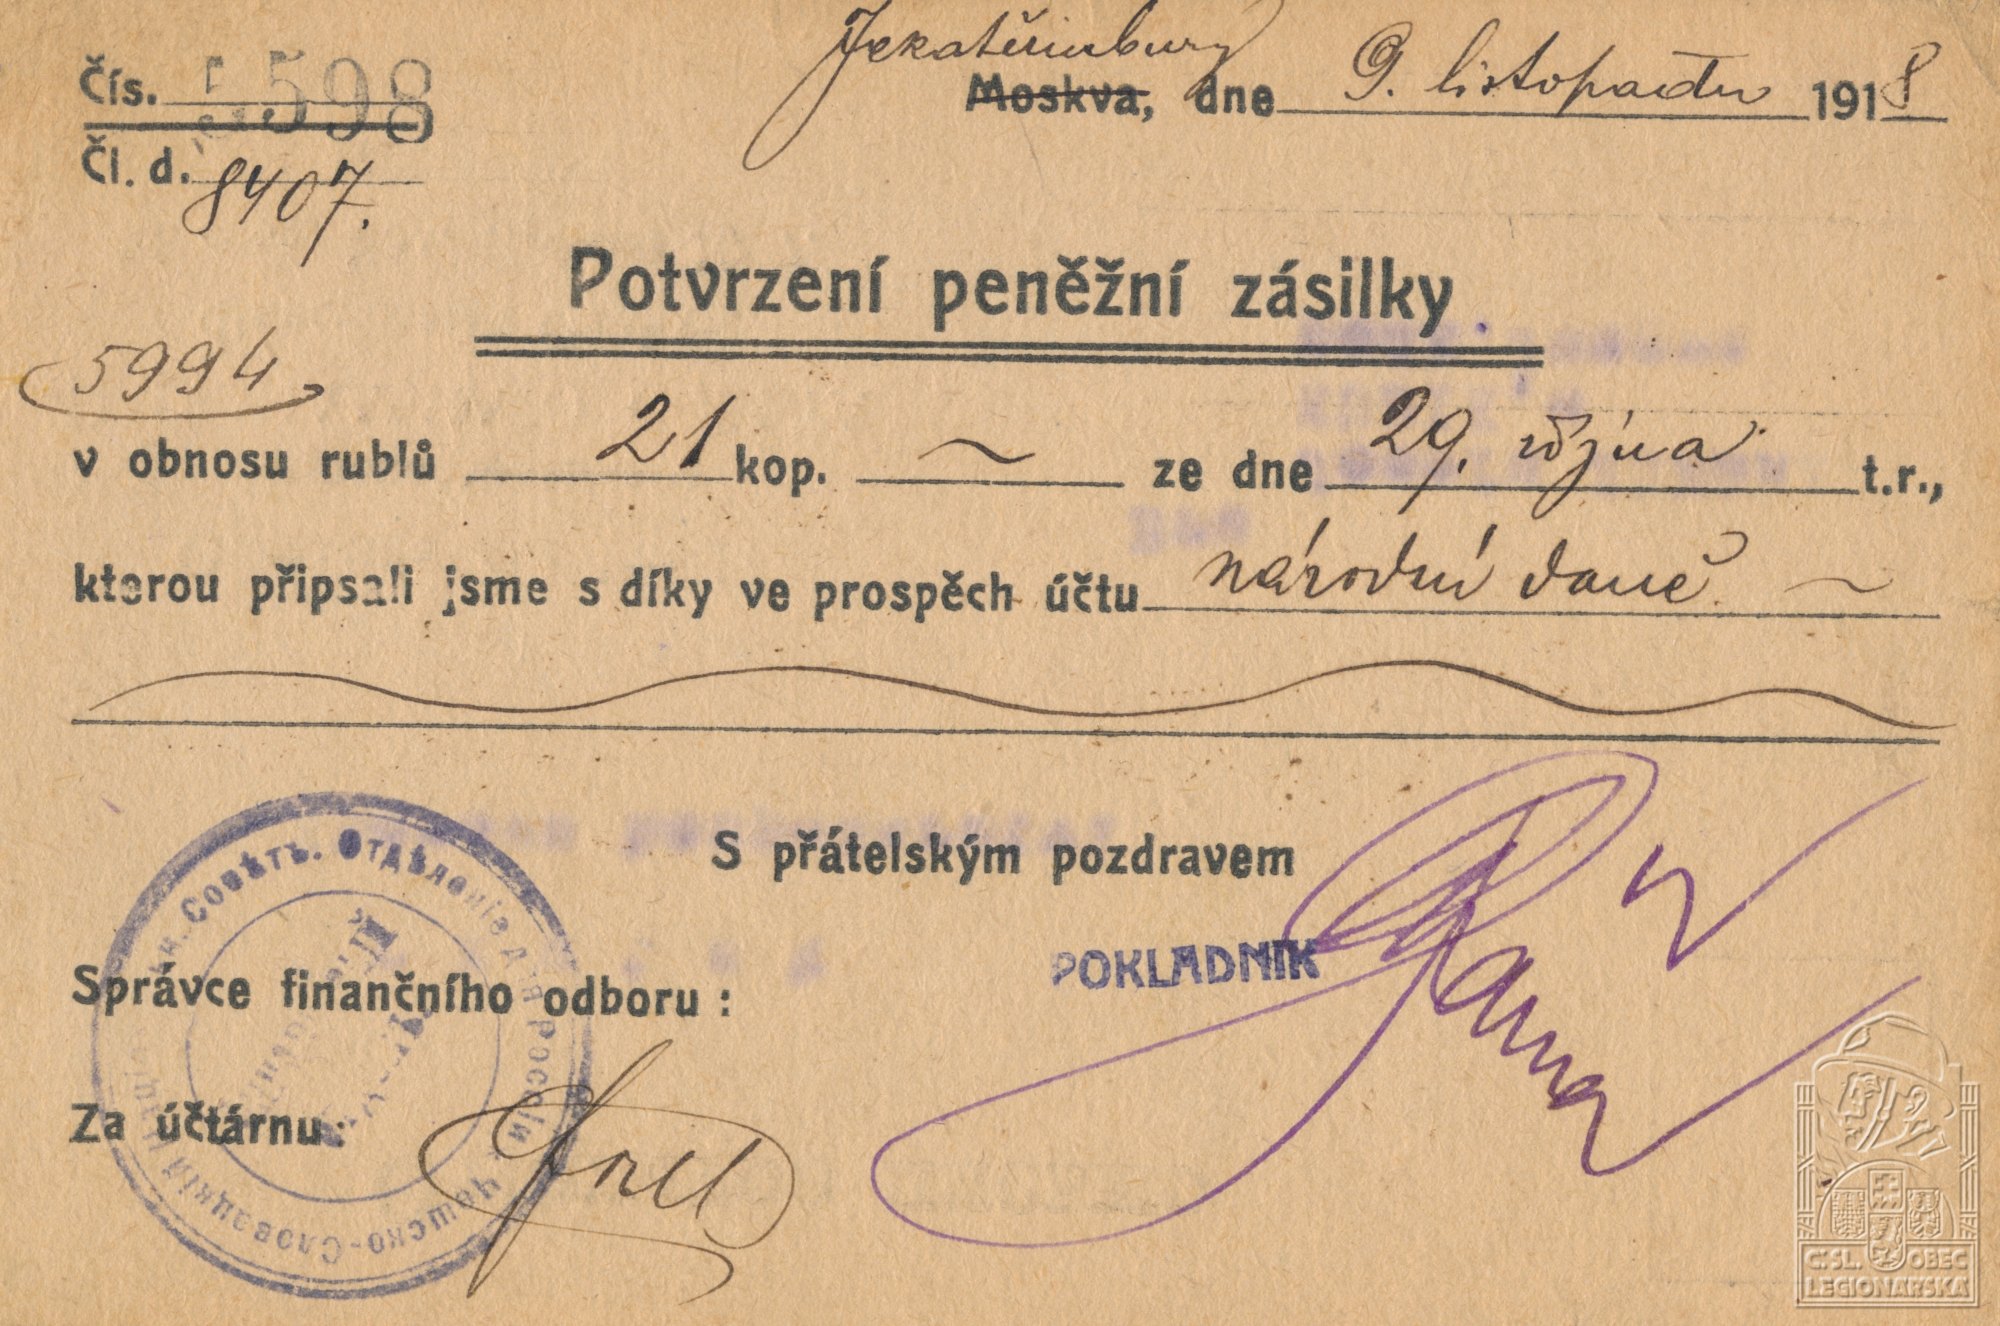 Jekatěrinburg
Čís. 5598 Moskva, dne 9. listopadu 1918
Čl. d. 8407.
Potvrzení peněžní zásilky
5994
v obnosu rublů 21 kop. ~ ze dne 29. října t.r.,
kterou připsali jsme s díky ve prospěch účtu národní daně ~
S přátelským pozdravem
POKLADNÍK
Správce finančního odboru :
Za účtárnu:
Чешско-Словацкій Совѣтъ. Отдѣленіе Россіи
Č.SL. OBEC
LEGIONÁŘSKÁ